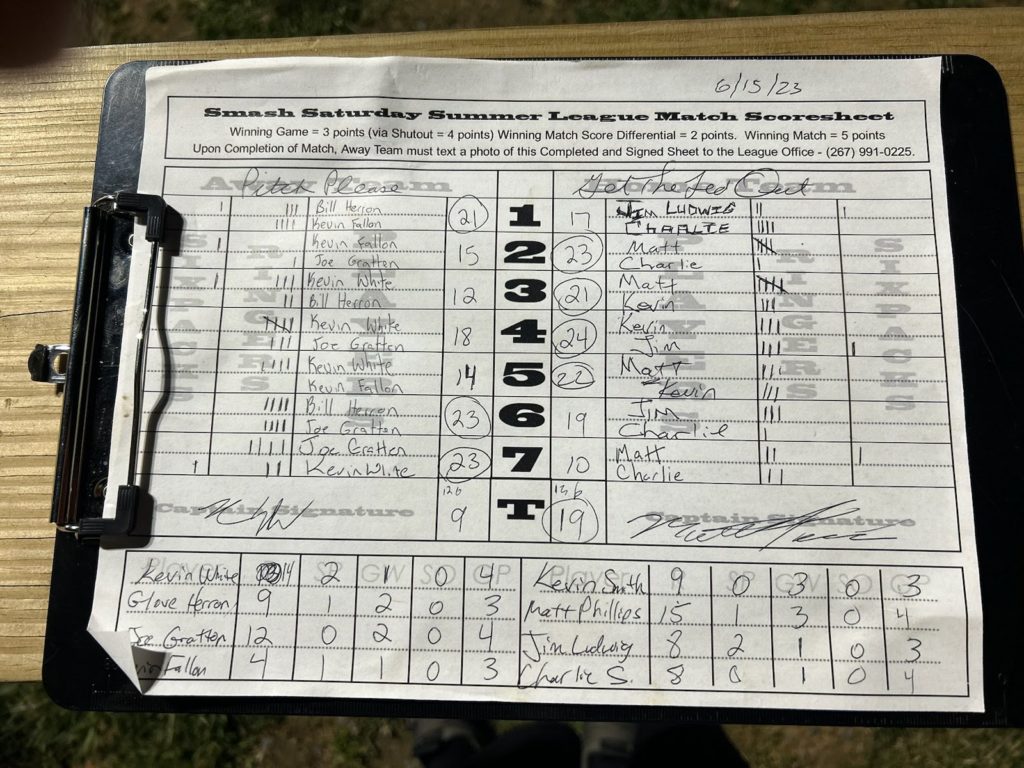 6/15/23
Smash Saturday Summer League Match Scoresheet
Winning Game = 3 points (via Shutout = 4 points) Winning Match Score Differential = 2 points. Winning Match = 5 points
Upon Completion of Match, Away Team must text a photo of this Completed and Signed Sheet to the League Office - (267) 991-0225.
Away Team Home Team
Pitch Please Get the Led Out
Bill Herron 21 1 17 Jim Ludwig
Kevin Fallon Charlie
Kevin Fallon 15 2 23 Matt
Joe Gratten Charlie
Kevin White 12 3 21 Matt
Bill Herron Kevin
Kevin White 18 4 24 Kevin
Joe Gratten Jim
Kevin White 14 5 22 Matt
Kevin Fallon Kevin
Bill Herron 23 6 19 Jim
Joe Gratten Charlie
Joe Gratten 23 7 10 Matt
Kevin White Charlie
SIXPACKS RINGERS PLAYERS PLAYERS RINGERS SIXPACKS
126 136
Captain Signature 9 T 19 Captain Signature
Player SP GW SO GP Player SP GW SO GP
Kevin White 14 2 1 0 4 Kevin Smith 9 0 3 0 3
Glove Herron 9 1 2 0 3 Matt Phillips 15 1 3 0 4
Joe Gratten 12 0 2 0 4 Jim Ludwig 8 2 1 0 3
Fallon 4 1 1 0 3 Charlie S. 8 0 1 0 4